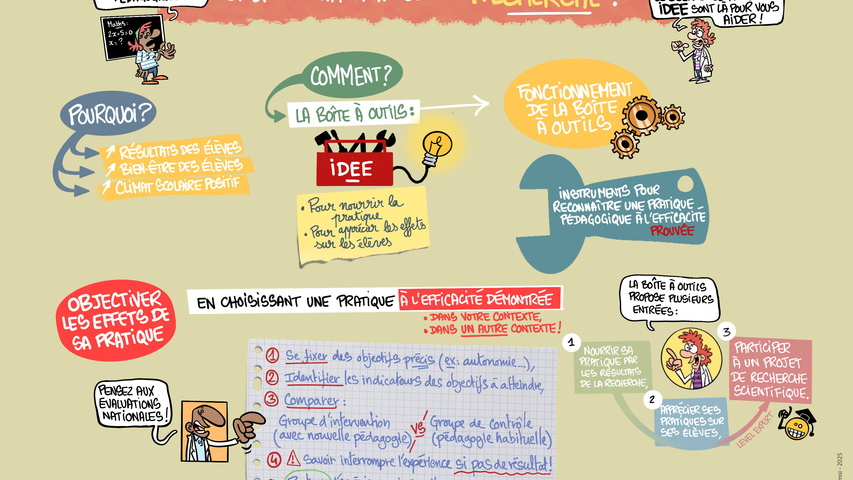 RECHERCHE ?
IDEE SONT LÀ POUR VOUS
AIDER !
Maths:
2x+5=0
x = ?
POURQUOI ?
↗ RÉSULTATS DES ÉLÈVES
↗ BIEN-ÊTRE DES ÉLÈVES
↗ CLIMAT SCOLAIRE POSITIF
COMMENT ?
LA BOÎTE À OUTILS :
iDEE
• Pour nourrir la
pratique
• Pour apprécier les effets
sur les élèves
FONCTIONNEMENT
DE LA BOÎTE
À OUTILS
INSTRUMENTS POUR
RECONNAÎTRE UNE PRATIQUE
PÉDAGOGIQUE À L'EFFICACITÉ
PROUVÉE
OBJECTIVER
LES EFFETS DE
SA PRATIQUE
EN CHOISISSANT UNE PRATIQUE À L'EFFICACITÉ DÉMONTRÉE
• DANS VOTRE CONTEXTE,
• DANS UN AUTRE CONTEXTE !
PENSEZ AUX
ÉVALUATIONS
NATIONALES !
1 Se fixer des objectifs précis (ex : autonomie...),
2 Identifier les indicateurs des objectifs à atteindre,
3 Comparer :
Groupe d'intervention VS Groupe de contrôle
(avec nouvelle pédagogie) (pédagogie habituelle)
4 ⚠ Savoir interrompre l'expérience si pas de résultat !
LA BOÎTE À OUTILS
PROPOSE PLUSIEURS
ENTRÉES :
1
NOURRIR SA
PRATIQUE PAR
LES RÉSULTATS
DE LA RECHERCHE,
2
APPRÉCIER SES
PRATIQUES SUR
SES ÉLÈVES,
3
PARTICIPER
À UN PROJET
DE RECHERCHE
SCIENTIFIQUE.
LEVEL EXPERT
- 2025